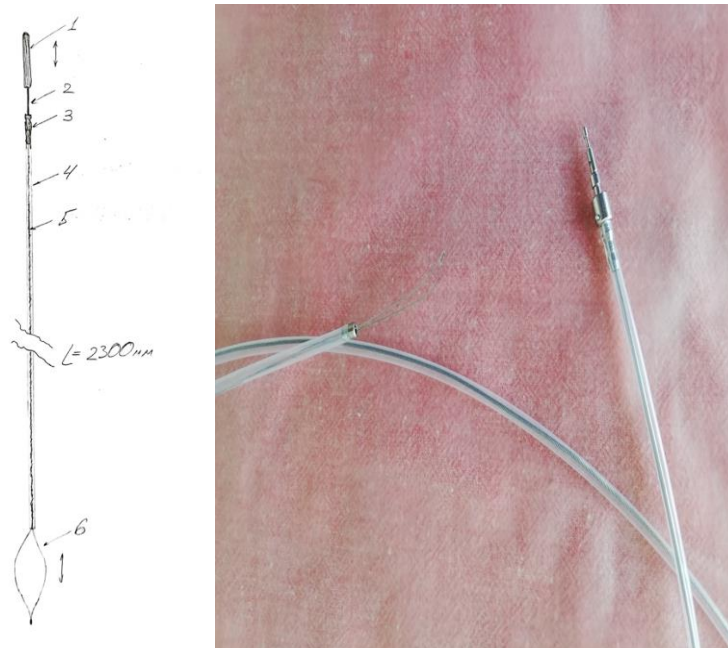 1
2
3
4
5
L=2300мм
6